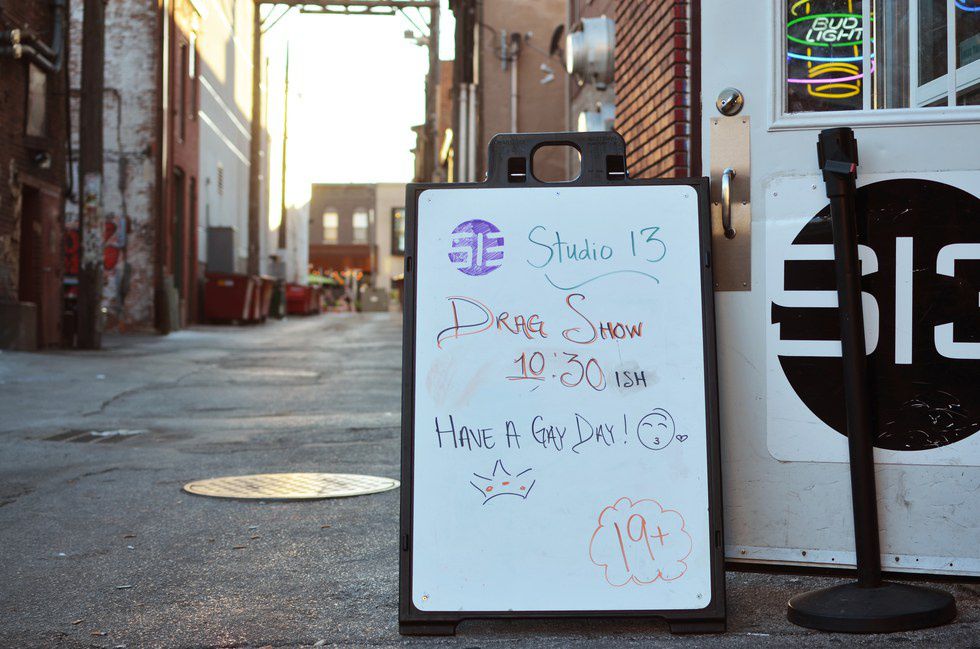 BUD
LIGHT
S13
Studio 13
DRAG SHOW
10:30 ISH
HAVE A GAY DAY!
19+
S13